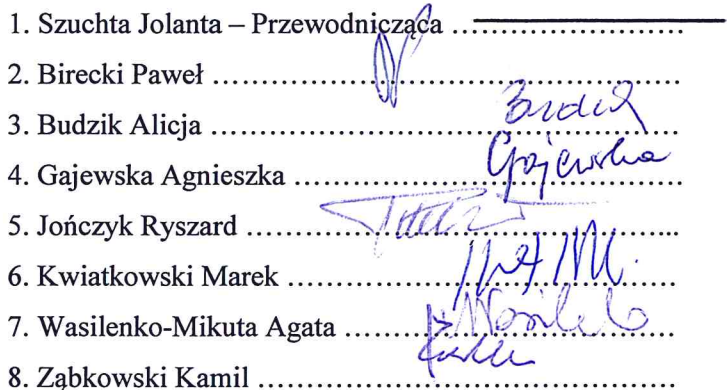 1. Szuchta Jolanta – Przewodnicząca ..............................
2. Birecki Paweł ............................................................
3. Budzik Alicja ............................................................
Gajewska
4. Gajewska Agnieszka ................................................
5. Jończyk Ryszard .......................................................
6. Kwiatkowski Marek ..................................................
7. Wasilenko-Mikuta Agata ...........................................
8. Ząbkowski Kamil ......................................................